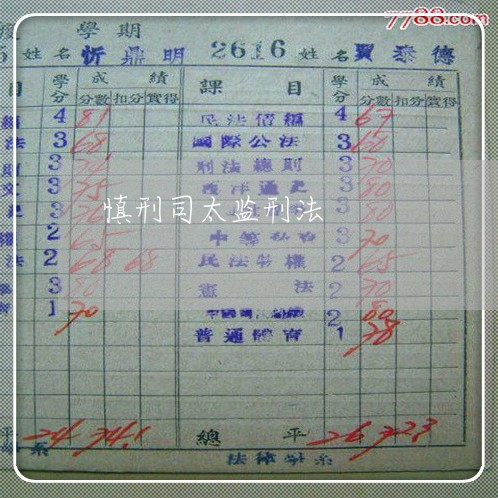 7788.com
學期
5 姓名 忻鼎明 2616 姓名 賈泰德
目 學分 成績 課目 學分 成績
分數 扣分 實得 分數 扣分 實得
4 81 民法債編 4 67
法 3 68 國際公法 3 60
3 刑法總則 3 70
文 3 75 西洋通史 3 80
3 3 80
慎刑司太监刑法
權 2 65 3 70
法 2 68 68 民法物權 2 65
3 80 憲法 2 70
育 1 70 2 80
普通體育 1 78
平 24 74.1 總平 26 72.3
系 法律學系